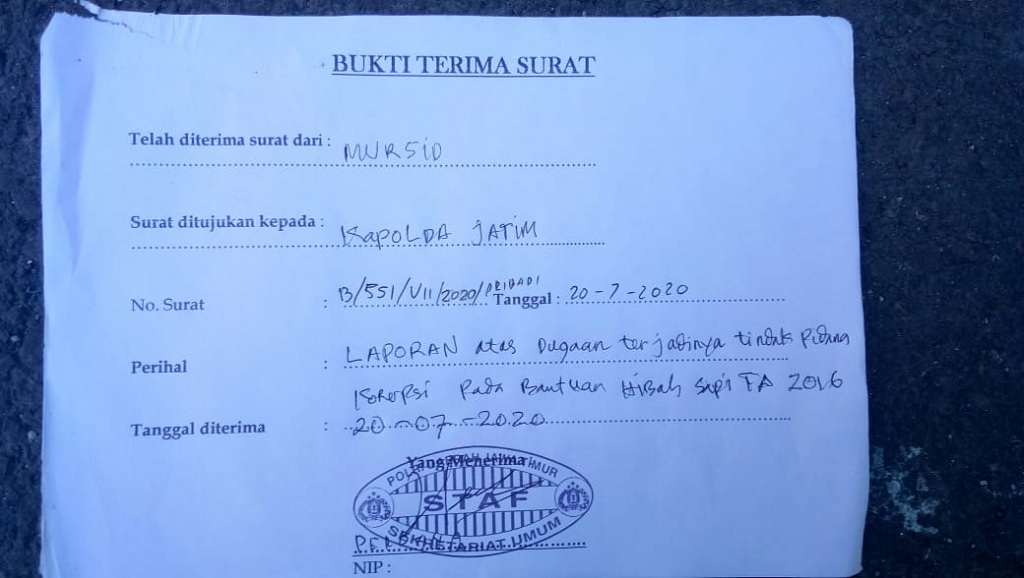 BUKTI TERIMA SURAT
Telah diterima surat dari : MURSID
Surat ditujukan kepada : KAPOLDA JATIM
No. Surat : B/551/VII/2020/PRIBADI Tanggal : 20-7-2020
Perihal : LAPORAN atas Dugaan terjadinya tindak Pidana
Korupsi Pada Bantuan Hibah sapi TA 2016
Tanggal diterima : 20-07-2020
Yang Menerima
DAERAH JAWA TIMUR
STAF
SEKRETARIAT UMUM
NIP :